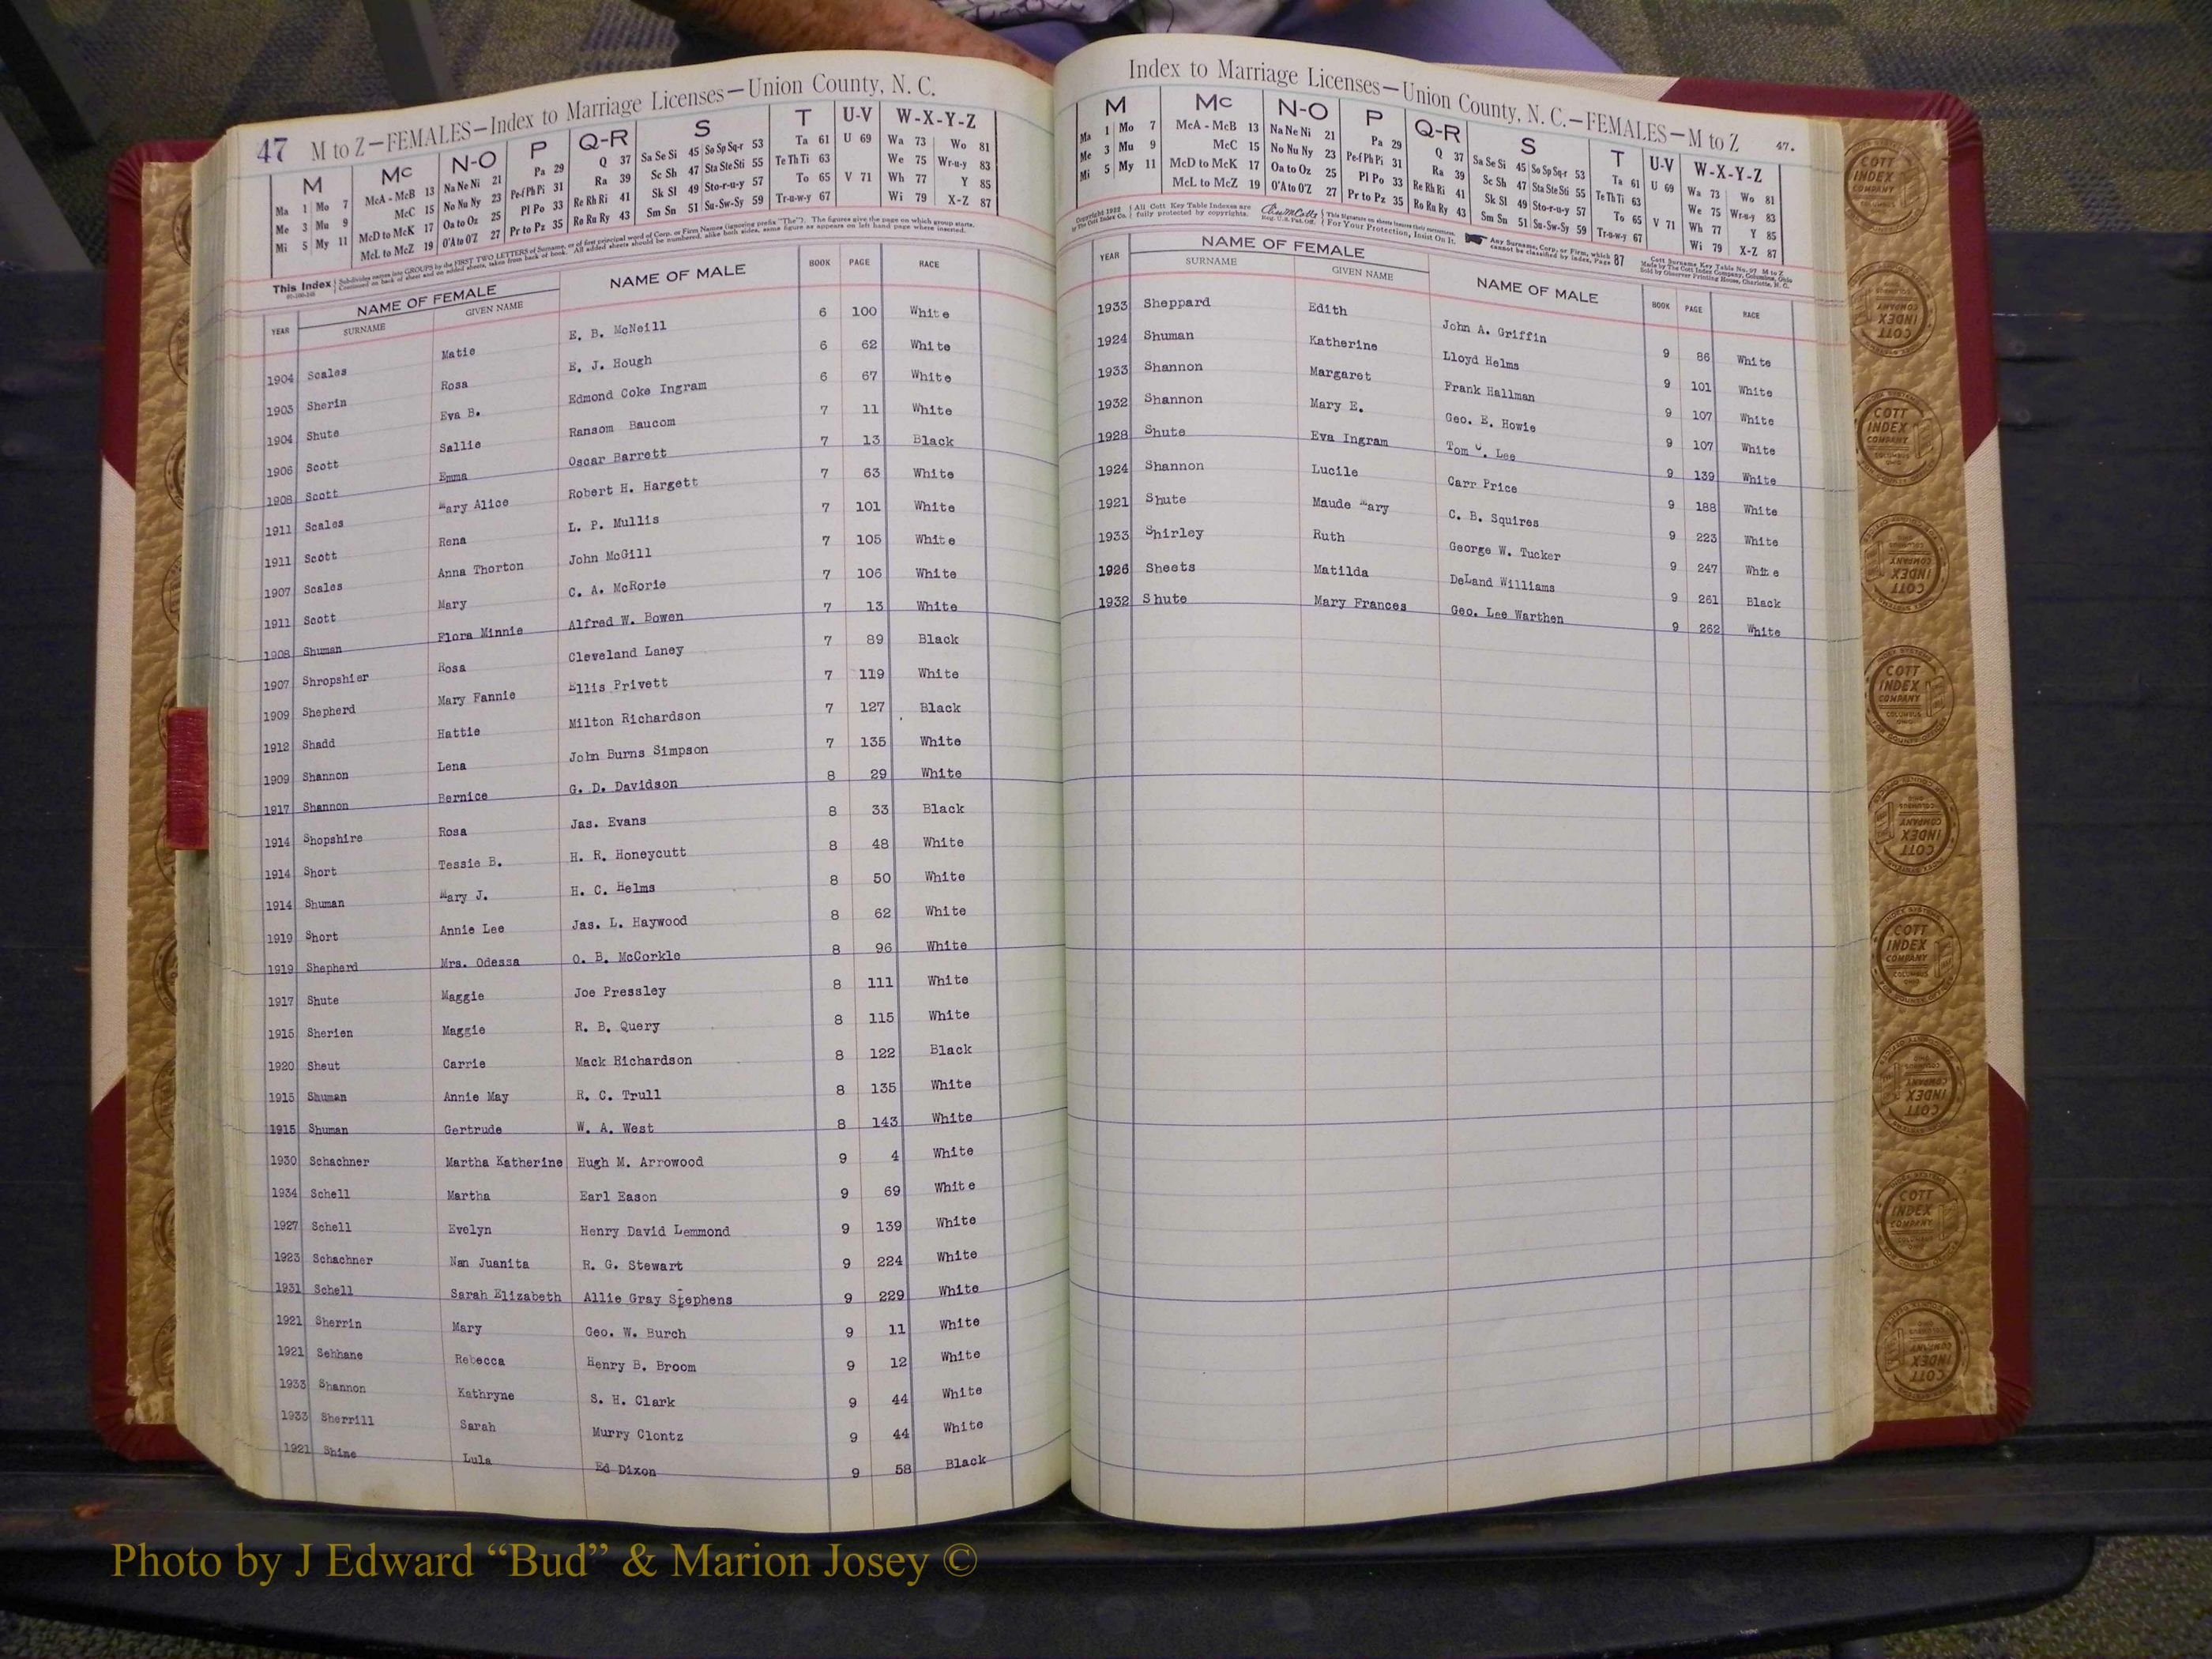 47 M to Z—FEMALES—Index to Marriage Licenses—Union County, N. C.
M Mc N-O P Q-R S T U-V W-X-Y-Z
Ma 1 Mo 7 McA - McB 13 Na Ne Ni 21 Pa 29 Q 37 Sa Se Si 45 So Sp Sq-r 53 Ta 61 U 69 Wa 73 Wo 81
Me 3 Mu 9 McC 15 No Nu Ny 23 Pe-f Ph Pi 31 Ra 39 Sc Sh 47 Sta Ste Sti 55 Te Th Ti 63 We 75 Wr-u-y 83
Mi 5 My 11 McD to McK 17 Oa to Oz 25 Pl Po 33 Re Rh Ri 41 Sk Sl 49 Sto-r-u-y 57 To 65 V 71 Wh 77 Y 85
McL to McZ 19 O'A to O'Z 27 Pr to Pz 35 Ro Ru Ry 43 Sm Sn 51 Su-Sw-Sy 59 Tr-u-w-y 67 Wi 79 X-Z 87
This Index Subdivides names into GROUPS by the FIRST TWO LETTERS of Surname, or of first principal word of Corp. or Firm Names (ignoring prefix "The"). The figures give the page on which group starts.
Continued on back of sheet and on added sheets, taken from back of book. All added sheets should be numbered, alike both sides, same figure as appears on left hand page where inserted.
YEAR NAME OF FEMALE NAME OF MALE BOOK PAGE RACE
SURNAME GIVEN NAME
1904 Scales Matie E. B. McNeill 6 100 White
1903 Sherin Rosa E. J. Hough 6 62 White
1904 Shute Eva B. Edmond Coke Ingram 6 67 White
1906 Scott Sallie Ransom Baucom 7 11 White
1908 Scott Emma Oscar Barrett 7 13 Black
1911 Scales Mary Alice Robert H. Hargett 7 63 White
1911 Scott Rena L. P. Mullis 7 101 White
1907 Scales Anna Thorton John McGill 7 105 White
1911 Scott Mary C. A. McRorie 7 106 White
1908 Shuman Flora Minnie Alfred W. Bowen 7 13 White
1907 Shropshier Rosa Cleveland Laney 7 89 Black
1909 Shepherd Mary Fannie Ellis Privett 7 119 White
1912 Shadd Hattie Milton Richardson 7 127 Black
1909 Shannon Lena John Burns Simpson 7 135 White
1917 Shannon Bernice G. D. Davidson 8 29 White
1914 Shopshire Rosa Jas. Evans 8 33 Black
1914 Short Tessie B. H. R. Honeycutt 8 48 White
1914 Shuman Mary J. H. C. Helms 8 50 White
1919 Short Annie Lee Jas. L. Haywood 8 62 White
1919 Shepherd Mrs. Odessa O. B. McCorkle 8 96 White
1917 Shute Maggie Joe Pressley 8 111 White
1915 Sherien Maggie R. B. Query 8 115 White
1920 Sheut Carrie Mack Richardson 8 122 Black
1915 Shuman Annie May R. C. Trull 8 135 White
1915 Shuman Gertrude W. A. West 8 143 White
1930 Schachner Martha Katherine Hugh M. Arrowood 9 4 White
1934 Schell Martha Earl Eason 9 69 White
1927 Schell Evelyn Henry David Lemmond 9 139 White
1923 Schachner Nan Juanita R. G. Stewart 9 224 White
1931 Schell Sarah Elizabeth Allie Gray Stephens 9 229 White
1921 Sherrin Mary Geo. W. Burch 9 11 White
1921 Sehhane Rebecca Henry B. Broom 9 12 White
1933 Shannon Kathryne S. H. Clark 9 44 White
1933 Sherrill Sarah Murry Clontz 9 44 White
1921 Shine Lula Ed Dixon 9 58 Black
Index to Marriage Licenses—Union County, N. C.—FEMALES—M to Z 47.
M Mc N-O P Q-R S T U-V W-X-Y-Z
Ma 1 Mo 7 McA - McB 13 Na Ne Ni 21 Pa 29 Q 37 Sa Se Si 45 So Sp Sq-r 53 Ta 61 U 69 Wa 73 Wo 81
Me 3 Mu 9 McC 15 No Nu Ny 23 Pe-f Ph Pi 31 Ra 39 Sc Sh 47 Sta Ste Sti 55 Te Th Ti 63 We 75 Wr-u-y 83
Mi 5 My 11 McD to McK 17 Oa to Oz 25 Pl Po 33 Re Rh Ri 41 Sk Sl 49 Sto-r-u-y 57 To 65 V 71 Wh 77 Y 85
McL to McZ 19 O'A to O'Z 27 Pr to Pz 35 Ro Ru Ry 43 Sm Sn 51 Su-Sw-Sy 59 Tr-u-w-y 67 Wi 79 X-Z 87
Copyright 1922 by The Cott Index Co. All Cott Key Table Indexes are fully protected by copyrights. Reg. U.S. Pat. Off. For Your Protection, Insist On It. Any Surname, Corp. or Firm, which cannot be classified by Index, Page 87
Made by The Cott Index Company, Columbus, Ohio
Sold by Observer Printing House, Charlotte, N. C.
YEAR NAME OF FEMALE NAME OF MALE BOOK PAGE RACE
SURNAME GIVEN NAME
1933 Sheppard Edith John A. Griffin 9 86 White
1924 Shuman Katherine Lloyd Helms 9 101 White
1933 Shannon Margaret Frank Hallman 9 107 White
1932 Shannon Mary E. Geo. E. Howie 9 107 White
1928 Shute Eva Ingram Tom Lee 9 139 White
1924 Shannon Lucile Carr Price 9 188 White
1921 Shute Maude Mary C. B. Squires 9 223 White
1933 Shirley Ruth George W. Tucker 9 247 White
1926 Sheets Matilda DeLand Williams 9 261 Black
1932 Shute Mary Frances Geo. Lee Warthen 9 262 White
COTT INDEX COMPANY
COLUMBUS OHIO
Photo by J Edward “Bud” & Marion Josey ©